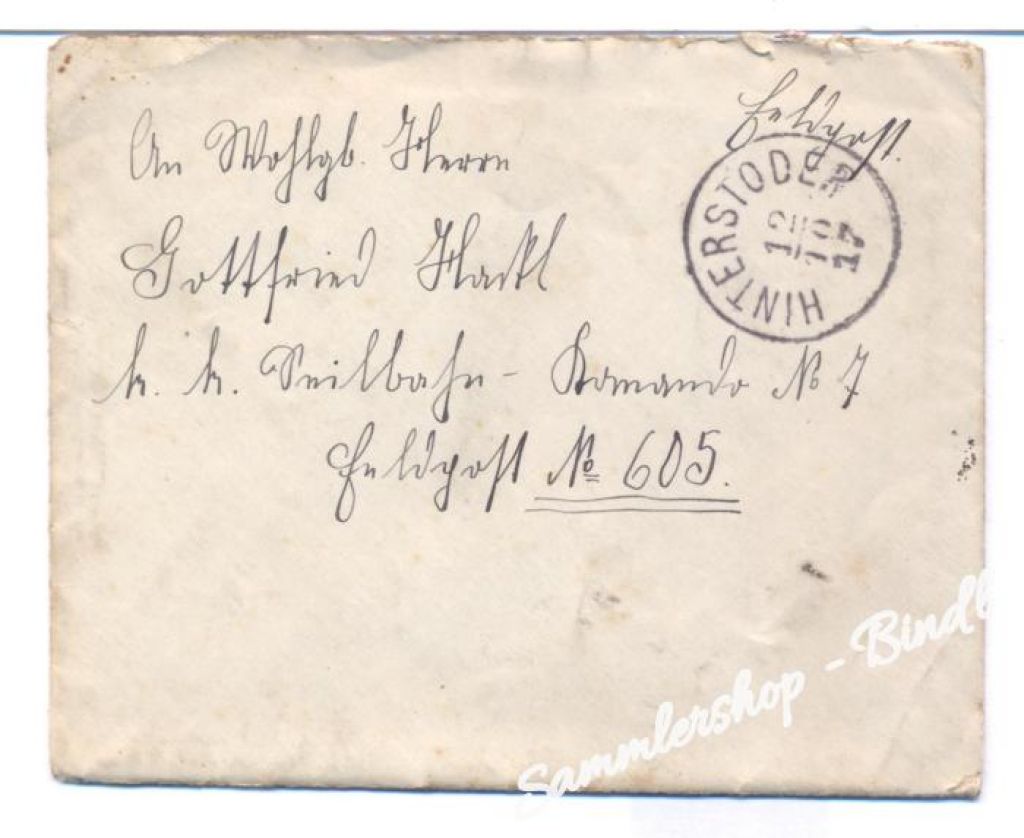 Feldpost.
An Wohlgb. Herrn
HINTERSTODER
12
10
17
Gottfried Hackl
k. k. Seilbahn - Komando No 7
Feldpost No 605.
Sammlershop - Bindl